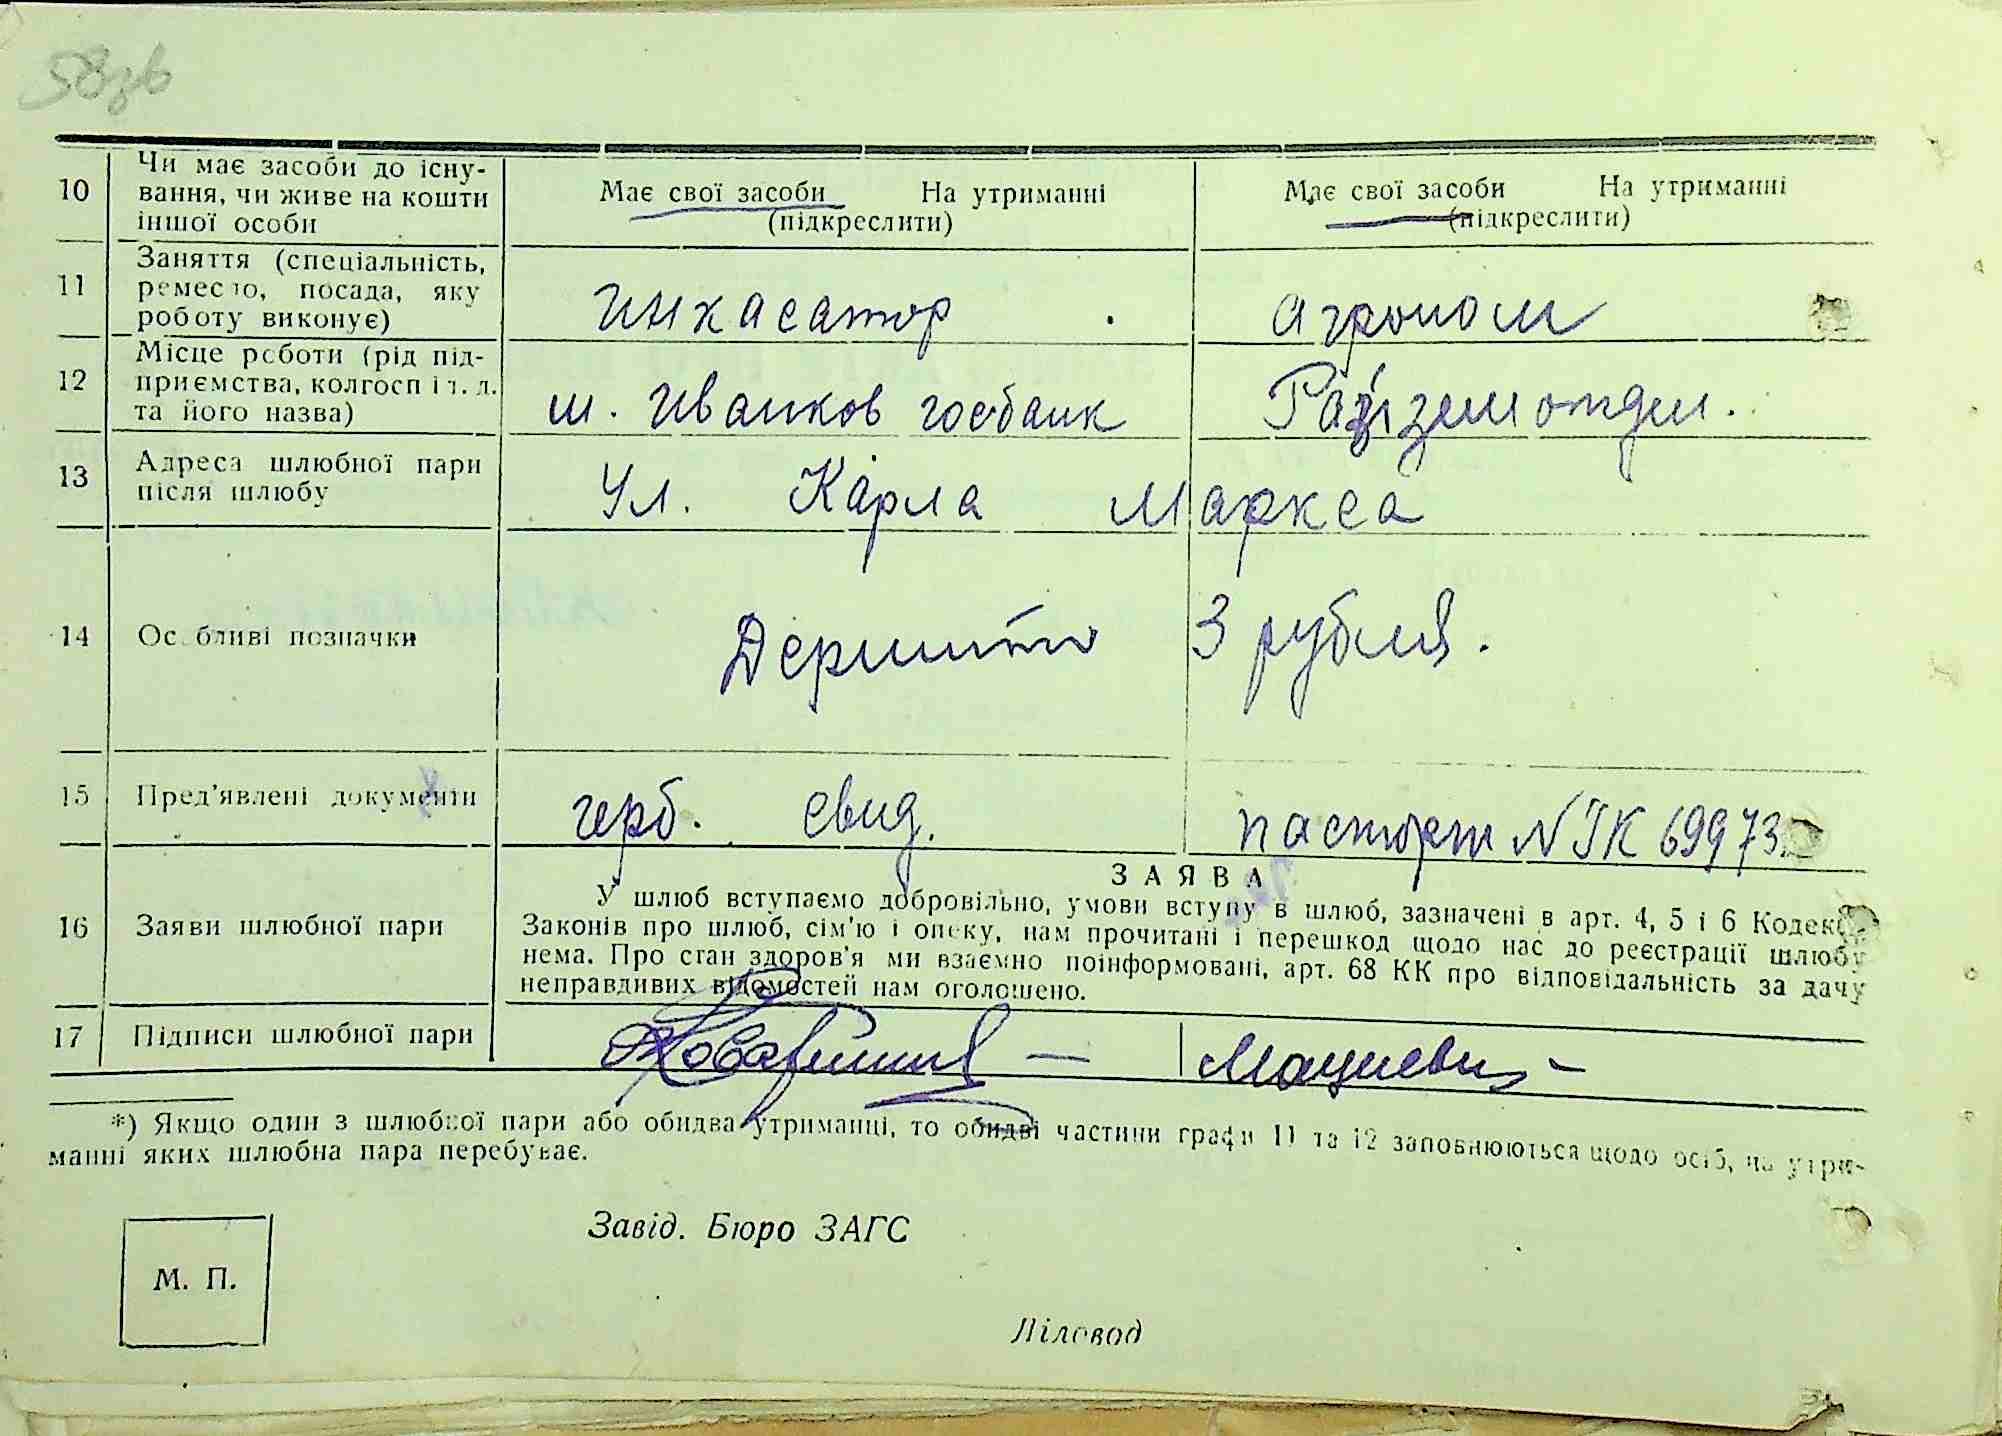 58зв
10 Чи має засоби до існу-
вання, чи живе на кошти
іншої особи
Має свої засоби На утриманні
(підкреслити)
Має свої засоби На утриманні
(підкреслити)
11 Заняття (спеціальність,
ремесло, посада, яку
роботу виконує)
инкасатор
агроном
12 Місце роботи (рід під-
приємства, колгосп і т. д.
та його назва)
м. Иванков госбанк
Райземотдел.
13 Адреса шлюбної пари
після шлюбу
Ул. Карла Маркса
14 Особливі позначки
3 рубля.
15 Пред'явлені документи
герб. свид.
паспорт
16 Заяви шлюбної пари
ЗАЯВА
У шлюб вступаємо добровільно, умови вступу в шлюб, зазначені в арт. 4, 5 і 6 Кодексу
Законів про шлюб, сім'ю і опеку, нам прочитані і перешкод щодо нас до реєстрації шлюбу
нема. Про стан здоров'я ми взаємно поінформовані, арт. 68 КК про відповідальність за дачу
неправдивих відомостей нам оголошено.
17 Підписи шлюбної пари
Мациевич
*) Якщо один з шлюбної пари або обидва утриманці, то обидві частини графи 11 та 12 заповнюються щодо осіб, на утри-
манні яких шлюбна пара перебуває.
Завід. Бюро ЗАГС
М. П.
Діловод